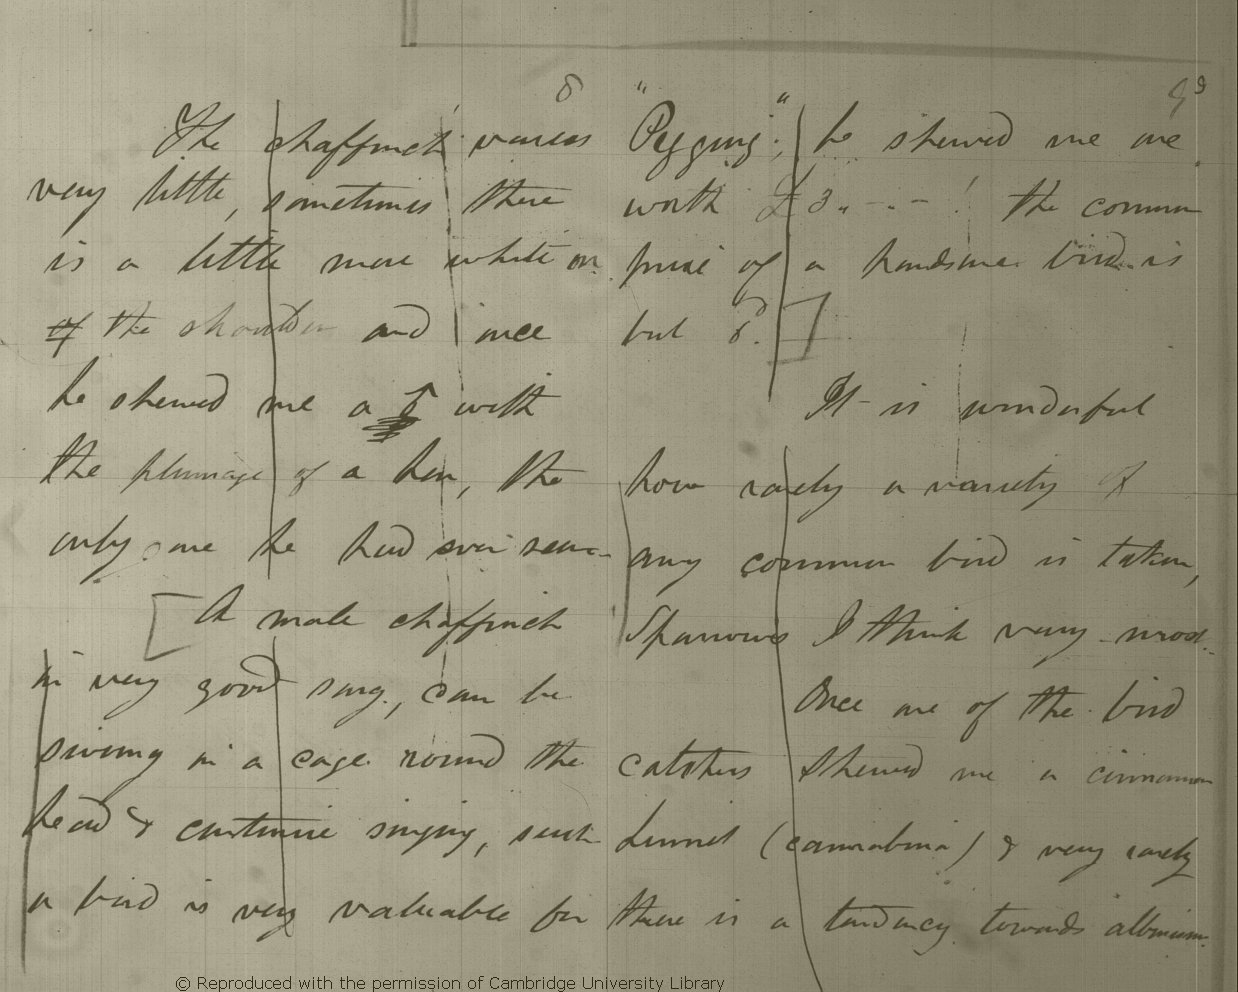 8
The chaffinch varies
very little, sometimes there
is a little more white on
of the shoulder and once
he shewed me a ♂ with
the plumage of a hen, the
only one he had ever seen
[A male chaffinch
in very good song, can be
swung in a cage round the
head & continue singing, such
a bird is very valuable for
9
"Pegging"; he shewed me one
worth £3.. - .. - ! the common
price of a handsome bird is
but 6d.]
It is wonderful
how rarely a variety of
any common bird is taken,
Sparrows I think very most.
Once one of the bird
catchers shewed me a cinnamon
Linnet (cannabina) & very rarely
there is a tendancy towards albinism.
© Reproduced with the permission of Cambridge University Library